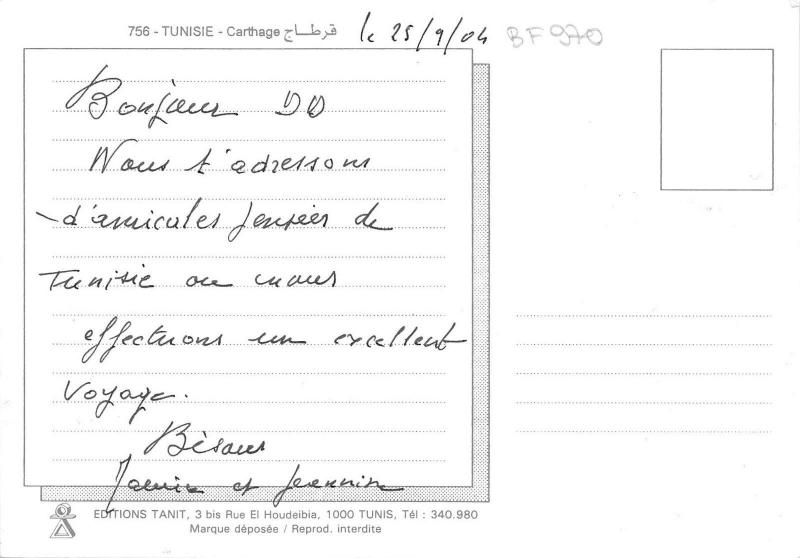 756 - TUNISIE - Carthage قرطاج le 25/9/04 BF970
Bonjour DD
Nous t'adressons
d'amicales pensées de
Tunisie ou nous
effectuons un excellent
voyage.
Bisous
et Jeannine
EDITIONS TANIT, 3 bis Rue El Houdeibia, 1000 TUNIS, Tél : 340.980
Marque déposée / Reprod. interdite